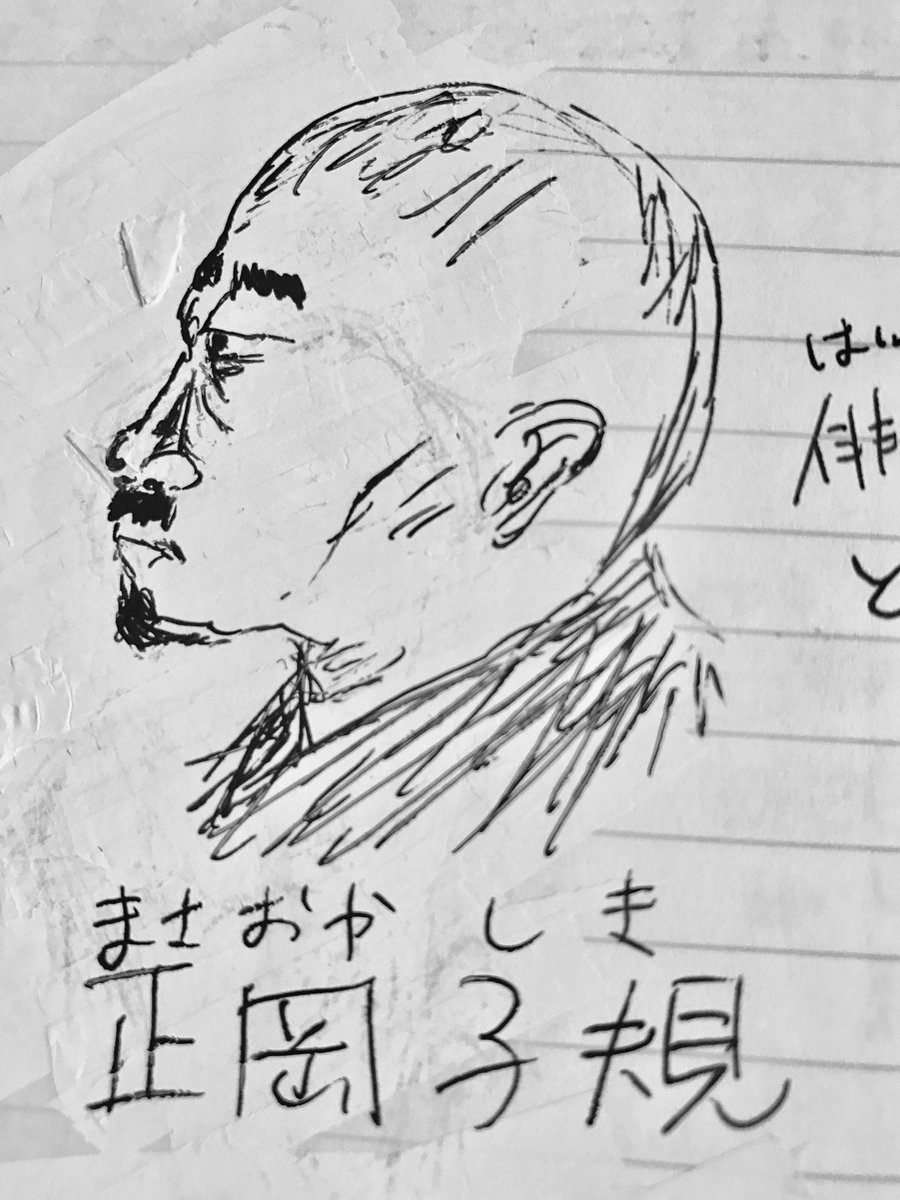 まさおか しき
正岡子規
はい
俳
と